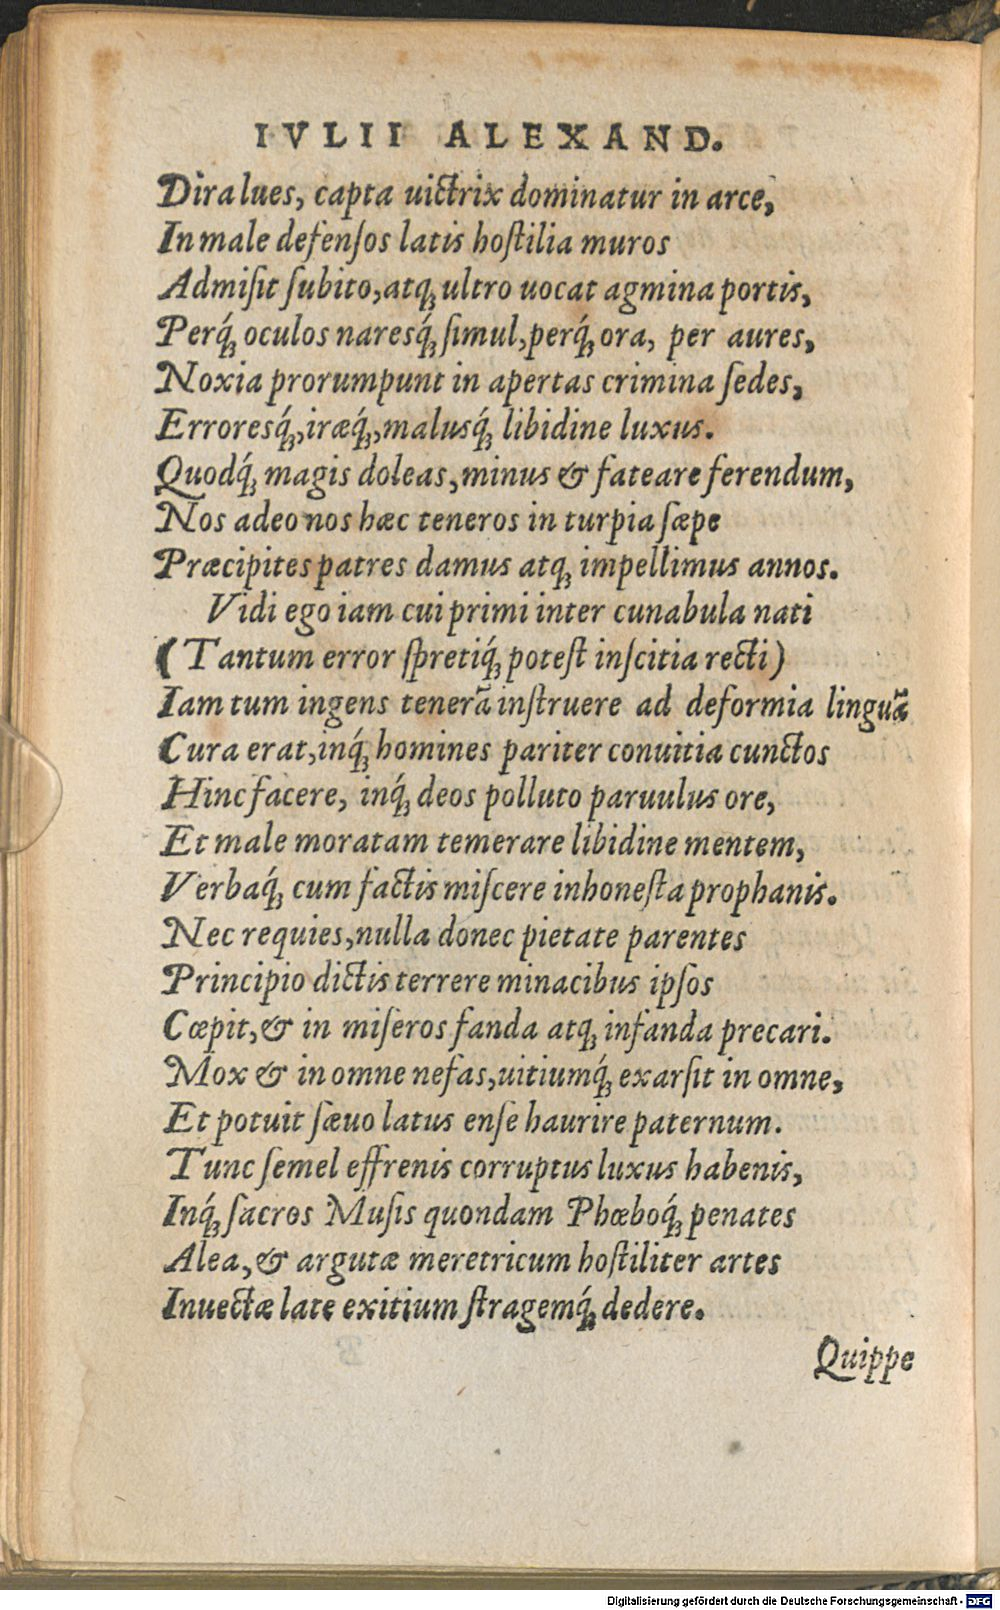 IVLII ALEXAND.
Dira lues, capta uictrix dominatur in arce,
In male defenſos latis hoſtilia muros
Admiſit ſubito, atq; ultro uocat agmina portis,
Perq́; oculos naresq́; ſimul, perq́; ora, per aures,
Noxia prorumpunt in apertas crimina ſedes,
Erroresq́;, iræq́;, malusq́; libidine luxus.
Quodq́; magis doleas, minus & fateare ferendum,
Nos adeo nos hæc teneros in turpia ſæpe
Præcipites patres damus atq; impellimus annos.
Vidi ego iam cui primi inter cunabula nati
(Tantum error ſpretiq́; poteſt inſcitia recti)
Iam tum ingens tenerã inſtruere ad deformia linguã
Cura erat, inq́; homines pariter conuitia cunctos
Hinc facere, inq́; deos polluto paruulus ore,
Et male moratam temerare libidine mentem,
Verbaq́; cum factis miſcere inhoneſta prophanis.
Nec requies, nulla donec pietate parentes
Principio dictis terrere minacibus ipſos
Cœpit, & in miſeros fanda atq; infanda precari.
Mox & in omne nefas, uitiumq́; exarſit in omne,
Et potuit ſæuo latus enſe haurire paternum.
Tunc ſemel effrenis corruptus luxus habenis,
Inq́; ſacros Muſis quondam Phœboq́; penates
Alea, & argutæ meretricum hoſtiliter artes
Inuectæ late exitium ſtragemq́; dedere.
Quippe
Digitalisierung gefördert durch die Deutsche Forschungsgemeinschaft - DFG